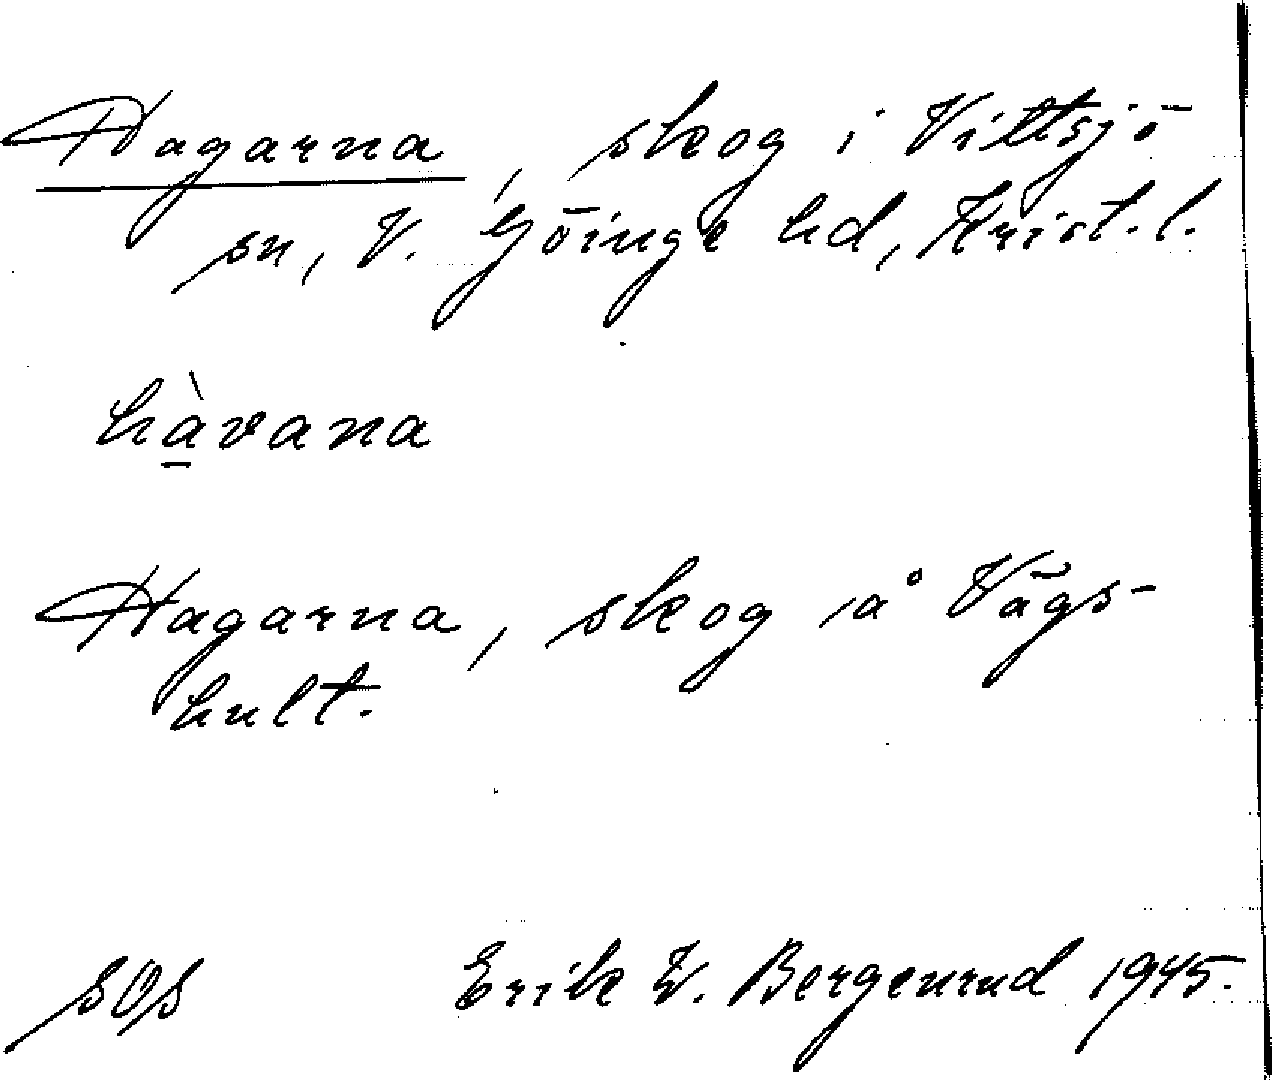 Hagarna, skog i Vittsjö
sn, V. Göinge hd, Krist. l.
hàvana
Hagarna, skog å Vägs-
hult.
SOS Erik W. Bergenrud 1945.